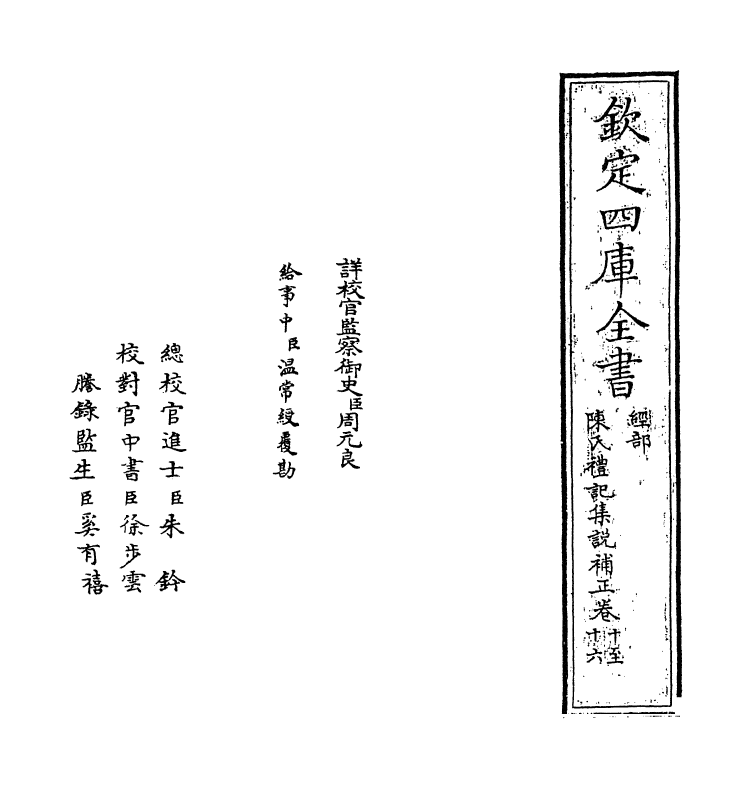 欽定四庫全書
經部
陳氏禮記集說補正卷十至十六
詳校官監察御史臣周元良
給事中臣温常綬覆勘
總校官進士臣朱鈐
校對官中書臣徐步雲
謄錄監生臣奚有禧